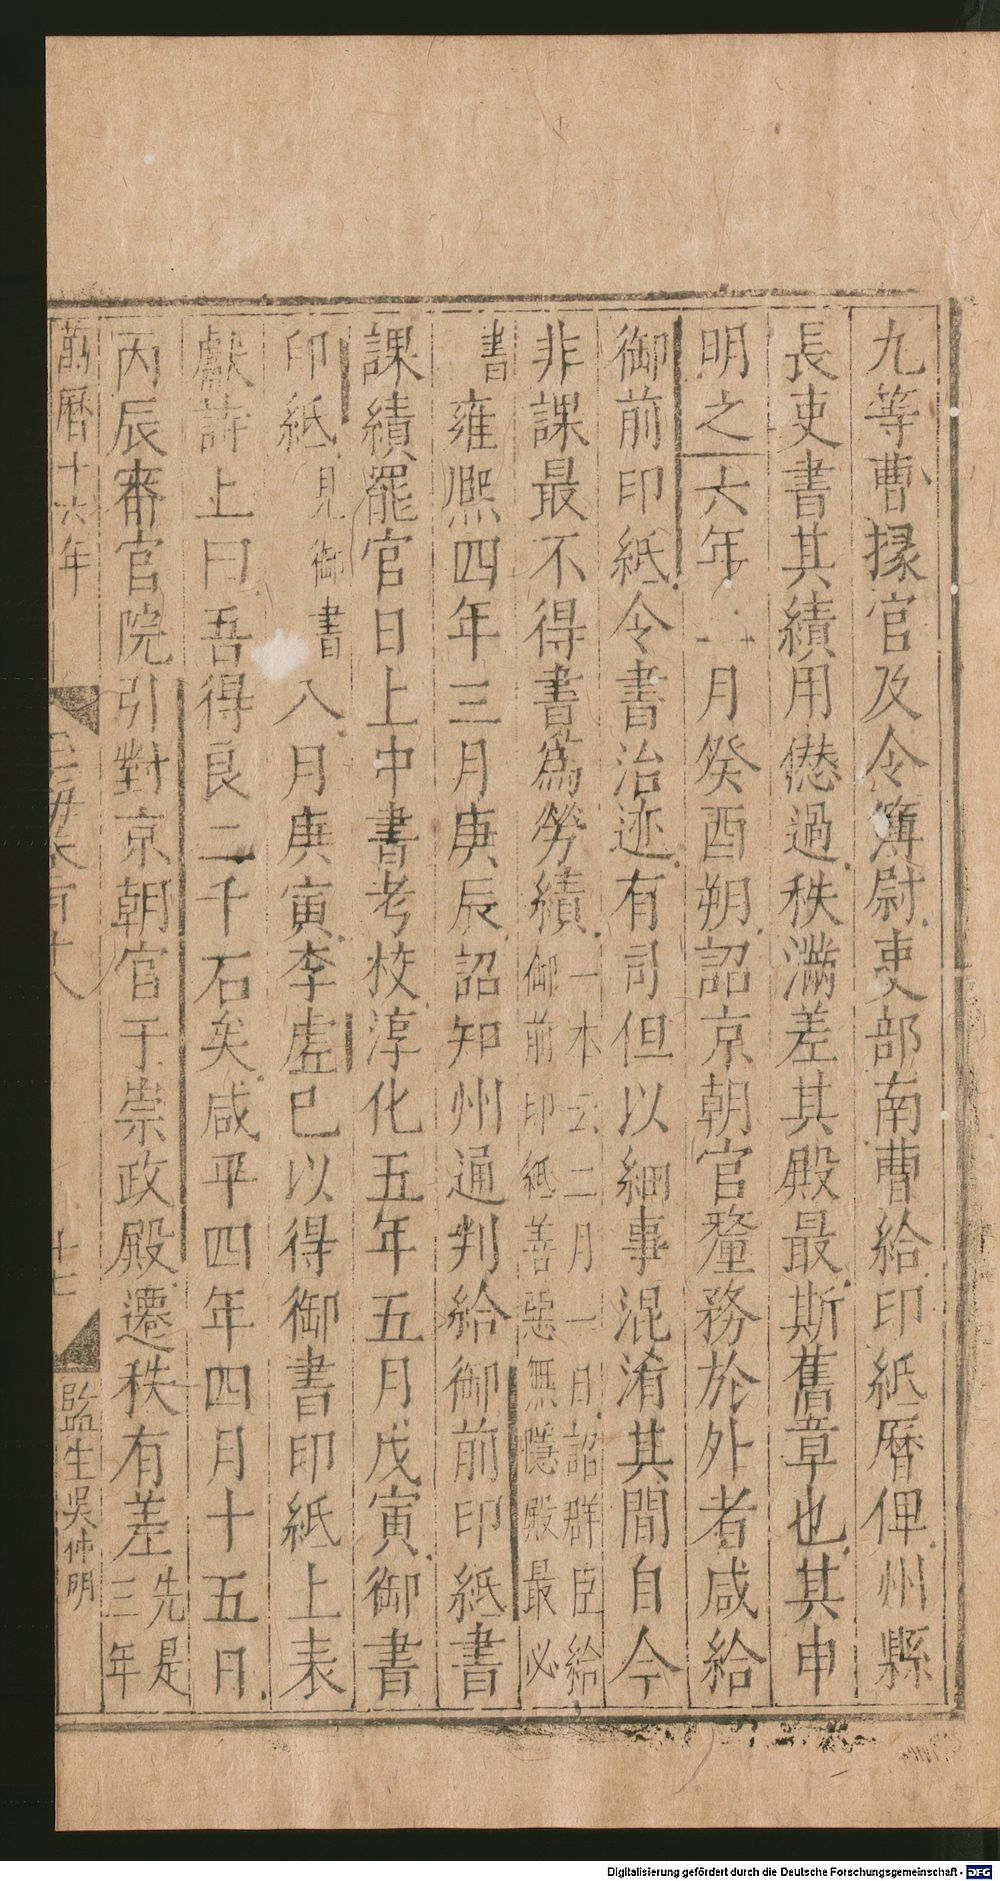 九等曹掾官及令簿尉吏部南曹給印紙曆俾州縣
長吏書其績用愆過秩滿差其殿最斯舊章也其申
明之六年六月癸酉朔詔京朝官釐務於外者咸給
御前印紙令書治迹有司但以細事混淆其間自今
非課最不得書為勞績一本云二月一日詔群臣給御前印紙善惡無隱殿最必
書雍熙四年三月庚辰詔知州通判給御前印紙書
課績罷官日上中書考校淳化五年五月戊寅御書
印紙見御書八月庚寅李虛已以得御書印紙上表
獻詩上曰吾得良二千石矣咸平四年四月十五日
丙辰審官院引對京朝官于崇政殿遷秩有差先是三年
萬曆十六年 玉海卷百十八 十七 監生吳仲明
Digitalisierung gefördert durch die Deutsche Forschungsgemeinschaft - DFG